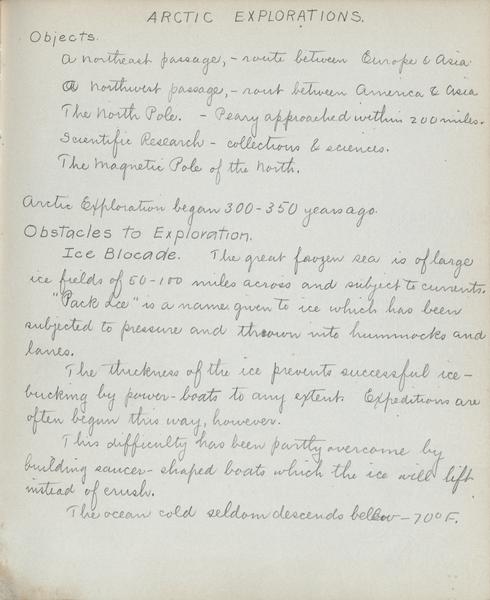 ARCTIC EXPLORATIONS.
Objects.
A northeast passage, - route between Europe & Asia
A northwest passage, - rout between America & Asia
The North Pole. - Peary approached within 200 miles.
Scientific Research - collections & sciences.
The Magnetic Pole of the North.
Arctic Exploration began 300-350 years ago.
Obstacles to Exploration.
Ice Blocade. The great frozen sea is of large
ice fields of 50-100 miles across and subject to currents.
"Pack Ice" is a name given to ice which has been
subjected to pressure and thrown into hummocks and
lanes.
The thickness of the ice prevents successful ice-
bucking by power-boats to any extent. Expeditions are
often begun this way, however.
This difficulty has been partly overcome by
building saucer-shaped boats which the ice will lift
instead of crush.
The ocean cold seldom descends below -70° F.